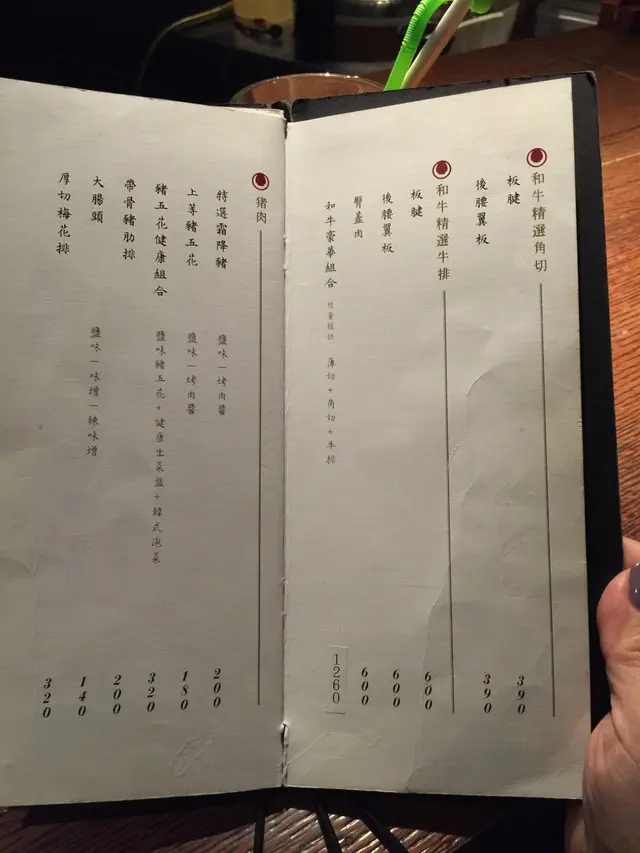 和牛精選角切
板腱 390
後腰翼板 390
和牛精選牛排
板腱 600
後腰翼板 600
臀蓋肉 600
和牛豪華組合 限量提供 薄切+角切+牛排 1260
豬肉
特選霜降豬 鹽味|烤肉醬 200
上等豬五花 鹽味|烤肉醬 180
豬五花健康組合 鹽味豬五花+健康生菜盤+韓式泡菜 320
帶骨豬肋排 200
大腸頭 鹽味|味增|辣味增 140
厚切梅花排 320